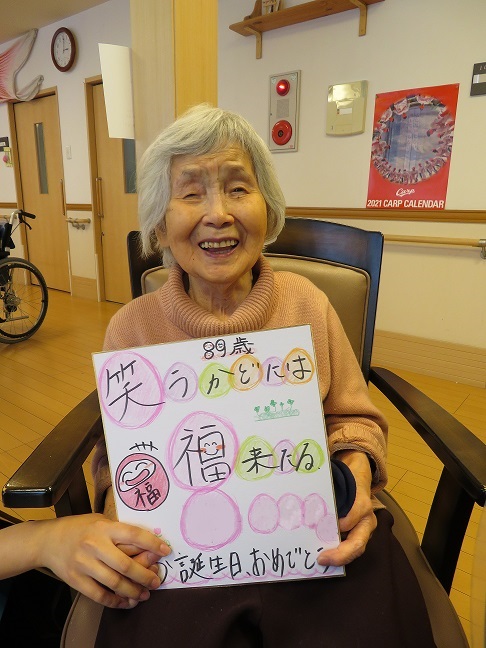 Carp
2021 CARP CALENDAR
89歳
笑うかどには
福来たる
福
お誕生日、おめでとう